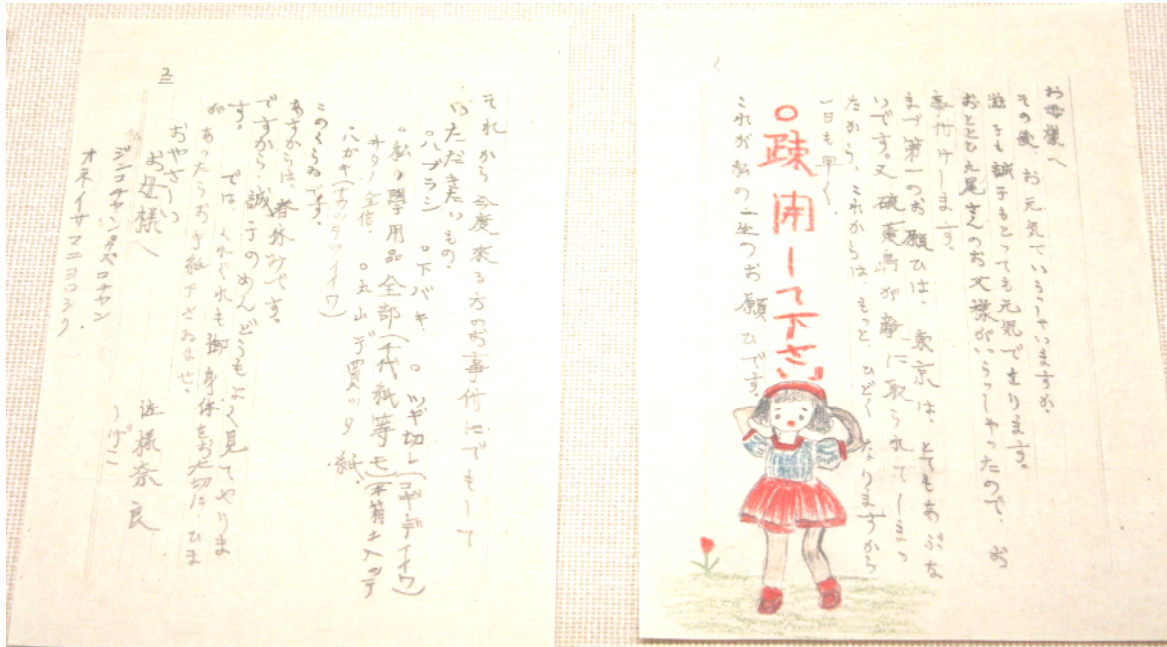 1
お母様へ
その後、お元気でいらっしゃいますか。
滋子も誠子もとっても元気でをります。
おとゝひ丸尾さんのお父様がいらっしゃったので、お
事付けします。
まづ第一のお願ひは、東京は、とてもあぶな
いです。又硫黄島が敵に取られてしまっ
たから、これからは、もっとひどくなりますから
一日も早く、
○疎開して下さい
これが私の一生のお願ひです。
2
それから今度来る方のお事付にでもして
いただきたいもの。
○ハブラシ ○下バキ ○ツギ切レ(コギデイイワ)
○私ノ學用品全部(千代紙等モ)(本箱ニ入ッテ
○丸山デ買ッタ紙。
ハガキ(
このくらゐです。
あすからは、春休みです。
ですから、誠子のめんどうもよく見てやりま
す。では、くれぐれも御身体をお大切に、ひま
があったらお手紙下さいませ。
おやさしい
お母様へ
佐様奈良
しげこ
オネイサマニヨロシク